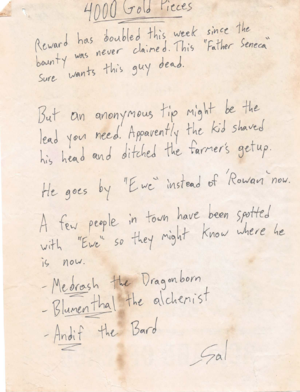 4000 Gold Pieces
Reward has doubled this week since the
bounty was never claimed. This "Father Seneca"
sure wants this guy dead.
But an anonymous tip might be the
lead you need. Apparently the kid shaved
his head and ditched the farmer's getup.
He goes by "Ewe" instead of "Rowan" now.
A few people in town have been spotted
with "Ewe" so they might know where he
is now.
- Medrash the Dragonborn
- Blumenthal the alchemist
- Andif the Bard
Sal